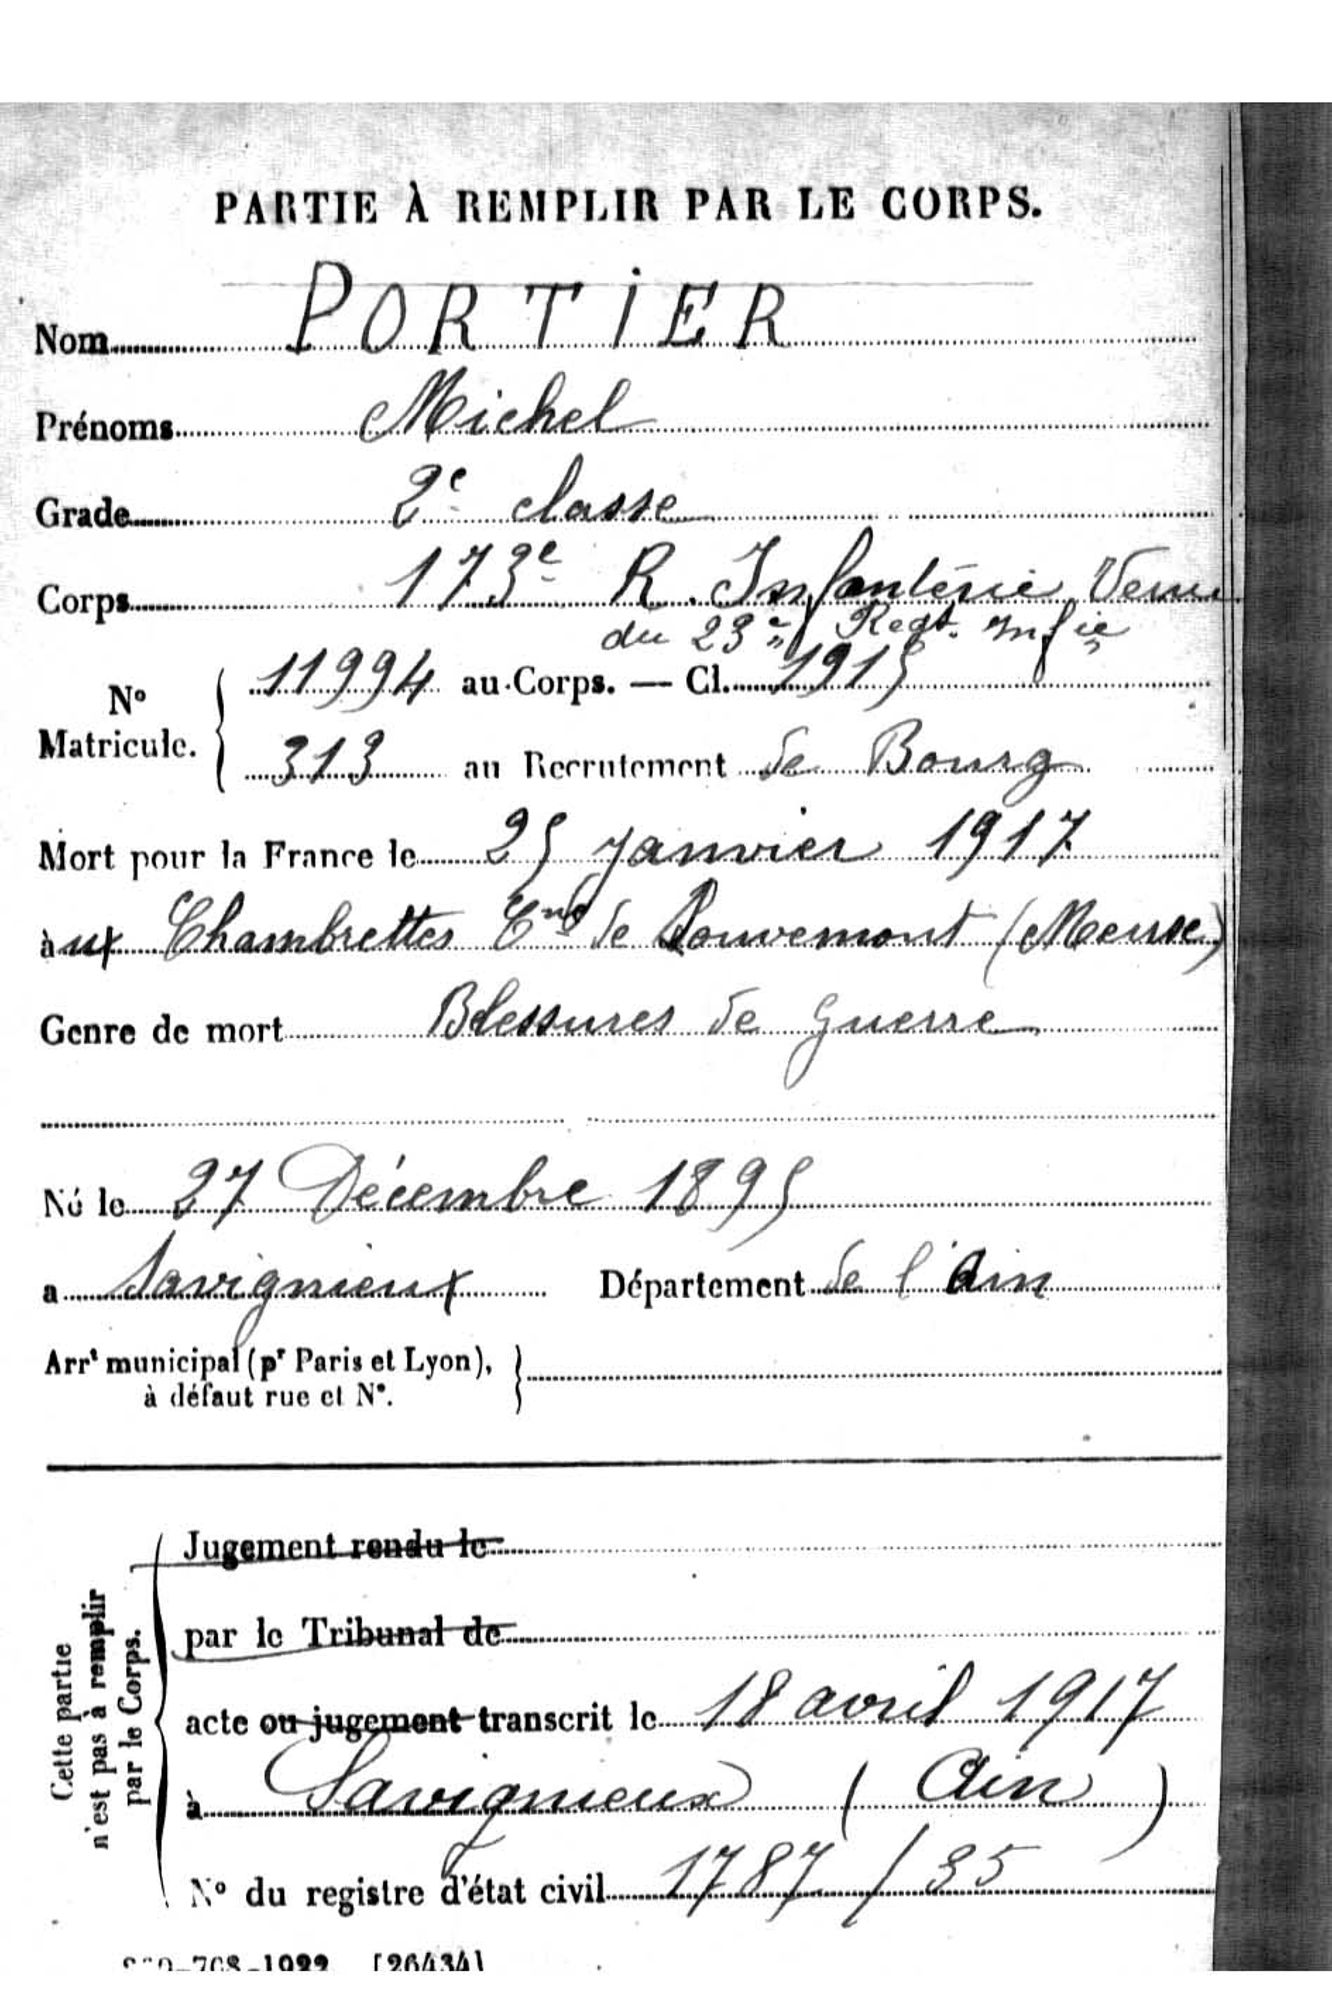 PARTIE À REMPLIR PAR LE CORPS.
Nom PORTIER
Prénoms Michel
Grade 2e classe
Corps 173e R. Infanterie Venu
du 23e Regt. Infie
No Matricule. 11994 au Corps. — Cl. 1915
313 au Recrutement de Bourg
Mort pour la France le 25 janvier 1917
aux Chambrettes Cne de Louvemont (Meuse)
Genre de mort Blessures de guerre
Né le 27 Décembre 1895
a Savignieux Département de l'Ain
Arrt municipal (pr Paris et Lyon),
à défaut rue et N°.
Cette partie n'est pas à remplir par le Corps.
Jugement rendu le
par le Tribunal de
acte ou jugement transcrit le 18 avril 1917
à Savigneux (Ain)
N° du registre d'état civil 1787/35
708-1922 [26434]